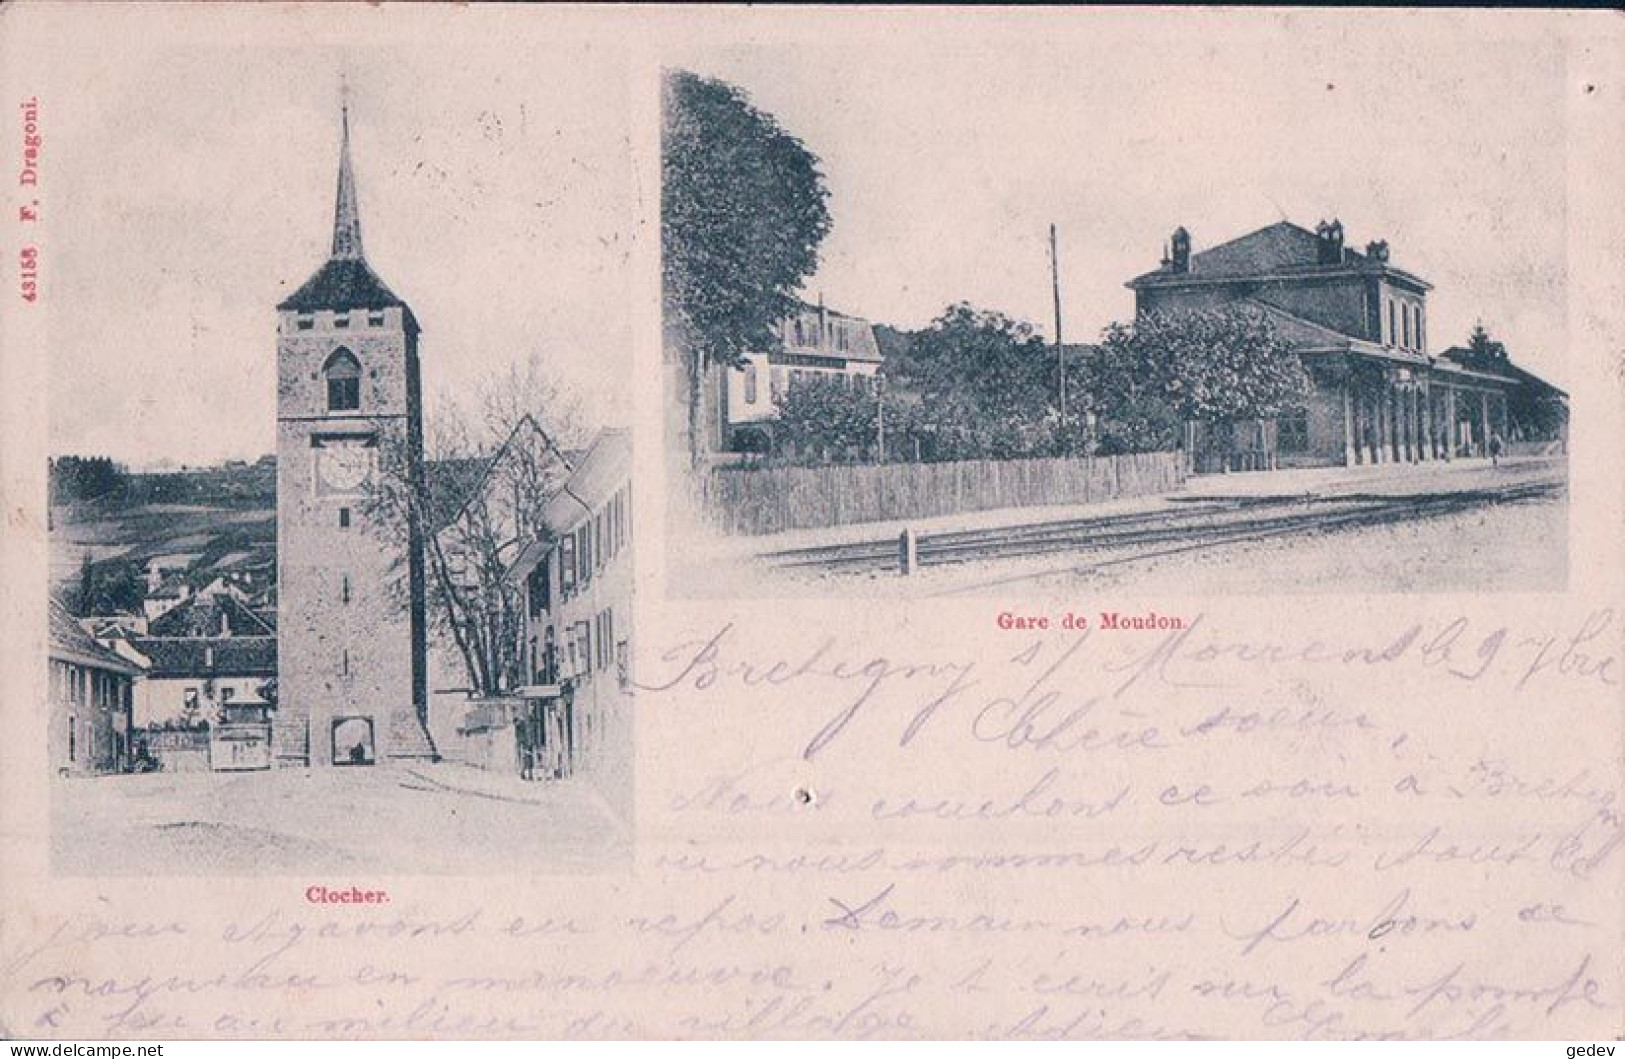 43158 F. Dragoni.
Clocher.
Gare de Moudon.
Bretigny s/ Morrens le 9 7bre
Chère soeur,
Nous couchont ce soir à Bretigny
ou nous sommes restés tout le
jour et avons eu repos. Demain nous partons de
nouveau en manoeuvre. Je t'écris sur la pompe
à feu au milieu du village. Adieu
gedev